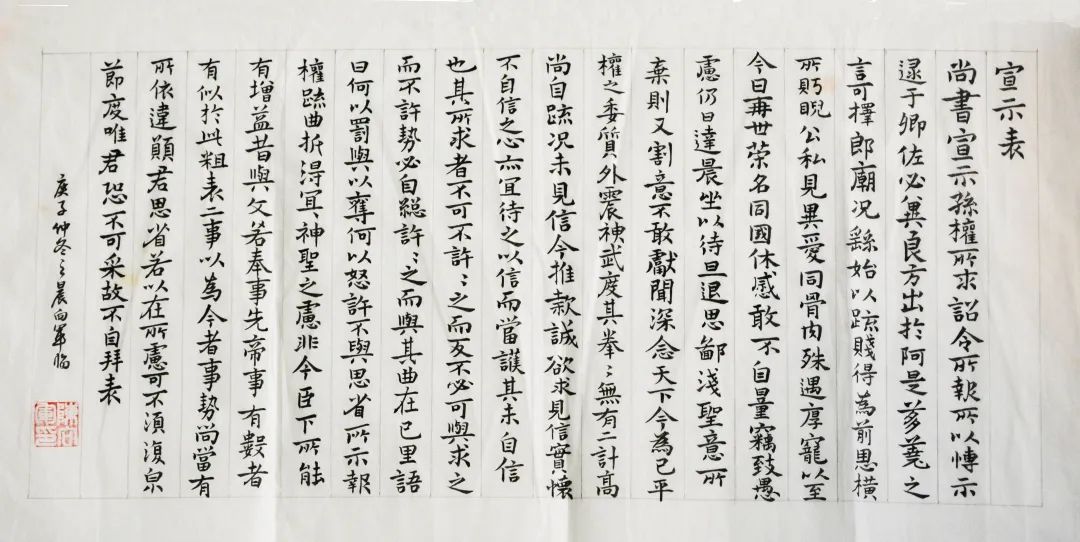 宣示表
尚書宣示孫權所求詔令所報所以博示
逮于卿佐必異良方出於阿是芻蕘之
言可擇郎廟況繇始以疏賤得為前恩橫
所眄睨公私見異愛同骨肉殊遇厚寵以至
今日再世榮名同國休慼敢不自量竊致愚
慮仍日達晨坐以待旦退思鄙淺聖意所
棄則又割意不敢獻聞深念天下今為已平
權之委質外震神武度其拳〻無有二計高
尚自疏況未見信今推款誠欲求見信實懷
不自信之心亦宜待之以信而當護其未自信
也其所求者不可不許〻之而反不必可與求之
而不許勢必自絕許〻之而與其曲在已里語
曰何以罰與以奪何以怒許不與思省所示報
權疏曲折得宜〻神聖之慮非今臣下所能
有增益昔與文若奉事先帝事有數者
有似於此粗表二事以為今者事勢尚當有
所依違願君思省若以在所慮可不須復㒵
節度唯君恐不可采故不自拜表
庚子仲冬之晨向軍臨